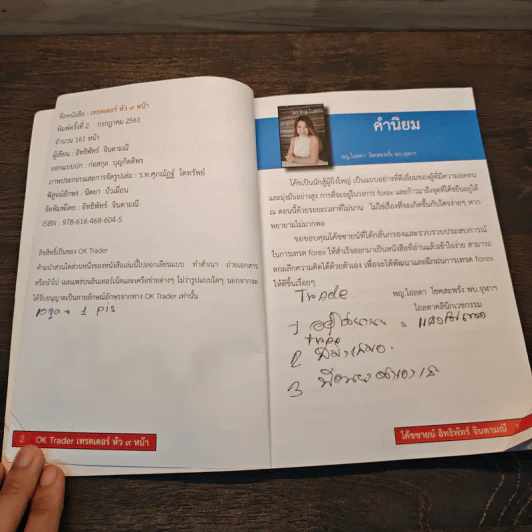 ชื่อหนังสือ : เทรดเดอร์ หัว ๙ หน้า
พิมพ์ครั้งที่ 2 กรกฎาคม 2561
จำนวน 161 หน้า
ผู้เขียน : อิทธิพัทร์ จินดามณี
ออกแบบปก : ก่อสกุล บุญกิตติพร
ภาพประกอบและการจัดรูปเล่ม : ว.ท.ศุภณัฏฐ์ ไตทรัพย์
พิสูจน์อักษร : นิตยา บัวเผื่อน
จัดพิมพ์โดย : อิทธิพัทร์ จินดามณี
ISBN : 978-616-468-604-5
ลิขสิทธิ์เป็นของ OK Trader
ห้ามนำส่วนใดส่วนหนึ่งของหนังสือเล่มนี้ไปลอกเลียนแบบ ทำสำเนา ถ่ายเอกสาร
หรือนำไป เผยแพร่บนอินเทอร์เน็ตและเครือข่ายต่างๆ ไม่ว่ารูปแบบใดๆ นอกจากจะ
ได้รับอนุญาตเป็นลายลักษณ์อักษรจากทาง OK Trader เท่านั้น
1 Pis
2 OK Trader เทรดเดอร์ หัว ๙ หน้า
คำนิยม
พญ.ไอลดา โชคสะพรั่ง พบ.จุฬาฯ
โค้ชเป็นนักสู้ผู้ยิ่งใหญ่ เป็นแบบอย่างที่ดีเยี่ยมของผู้ที่มีความอดทน
และมุ่งมั่นอย่างสูง การที่จะอยู่ในวงการ forex และก้าวมาถึงจุดที่โค้ชยืนอยู่ได้
ณ ตอนนี้ด้วยระยะเวลาที่ไม่นาน ไม่ใช่เรื่องที่จะเกิดขึ้นกับใครง่ายๆ หาก
พยายามไม่มากพอ
ขอขอบคุณโค้ชชายน์ที่ได้กลั่นกรองและรวบรวบประสบการณ์
ในการเทรด forex ให้สำเร็จออกมาเป็นหนังสือที่อ่านแล้วเข้าใจง่าย สามารถ
ตกผลึกความคิดได้ด้วยตัวเอง เพื่อจะได้พัฒนาและฝึกฝนการเทรด forex
ให้ดีขึ้นเรื่อยๆ
Trade. พญ.ไอลดา โชคสะพรั่ง พบ.จุฬาฯ
ไอลดาคลินิกเวชกรรม
1
2
3
โค้ชชายน์ อิทธิพัทร์ จินดามณี